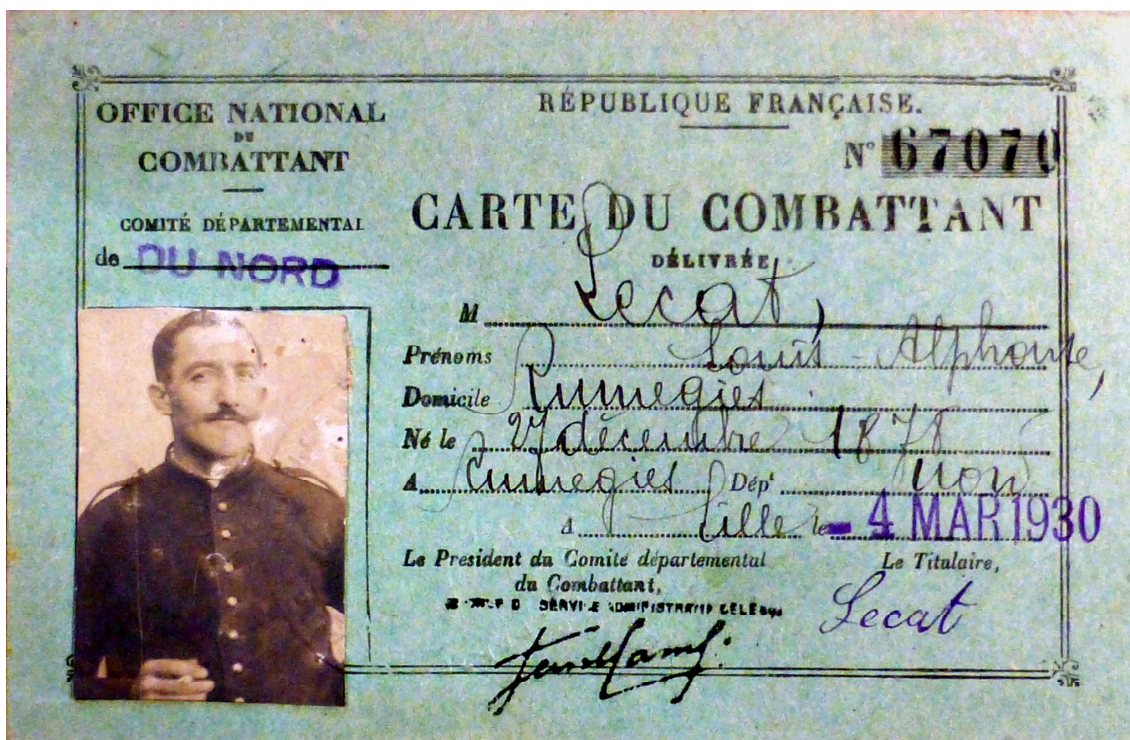 OFFICE NATIONAL
DU
COMBATTANT
COMITÉ DÉPARTEMENTAL
de DU NORD
RÉPUBLIQUE FRANÇAISE.
N° 67070
CARTE DU COMBATTANT
DÉLIVRÉE
M Lecat,
Prénoms Louis - Alphonse,
Domicile Rumegies
Né le 27 décembre 1878
A Rumegies Dépt Nord
A Lille le - 4 MAR 1930
Le President du Comité départemental
du Combattant,
SERVICE ADMINISTRATIF
Le Titulaire,
Lecat